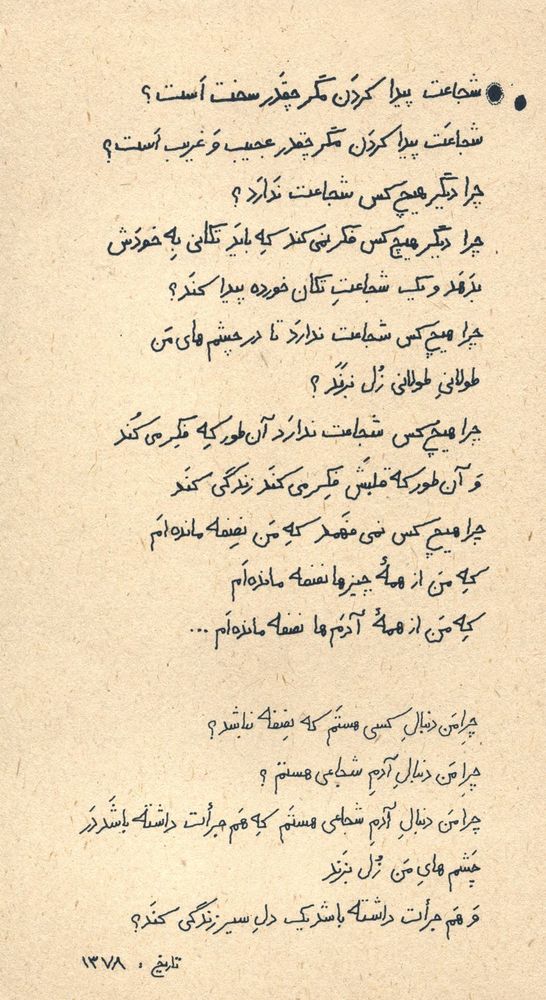 شجاعت پیدا کردن مگر چقدر سخت است؟
شجاعت پیدا کردن مگر چقدر عجیب و غریب است؟
چرا دیگر هیچ کس شجاعت ندارد؟
چرا دیگر هیچ کس فکر نمی کند که باید تکانی به خودش
بدهد و یک شجاعتِ تکان خورده پیدا کند؟
چرا هیچ کس شجاعت ندارد تا در چشم های من
طولانیِ طولانی زُل بزند؟
چرا هیچ کس شجاعت ندارد آن طور که فکر می کند
و آن طور که قلبش فکر می کند زندگی کند
چرا هیچ کس نمی فهمد که من نصفه مانده ام
که من از همهٔ چیزها نصفه مانده ام
که من از همهٔ آدم ها نصفه مانده ام ...
چرا من دنبالِ کسی هستم که نصفه نباشد؟
چرا من دنبالِ آدمِ شجاعی هستم؟
چرا من دنبالِ آدمِ شجاعی هستم که هم جرأت داشته باشد در
چشم هایِ من زُل بزند
و هم جرأت داشته باشد یک دلِ سیر زندگی کند؟
تاریخ : ۱۳۷۸